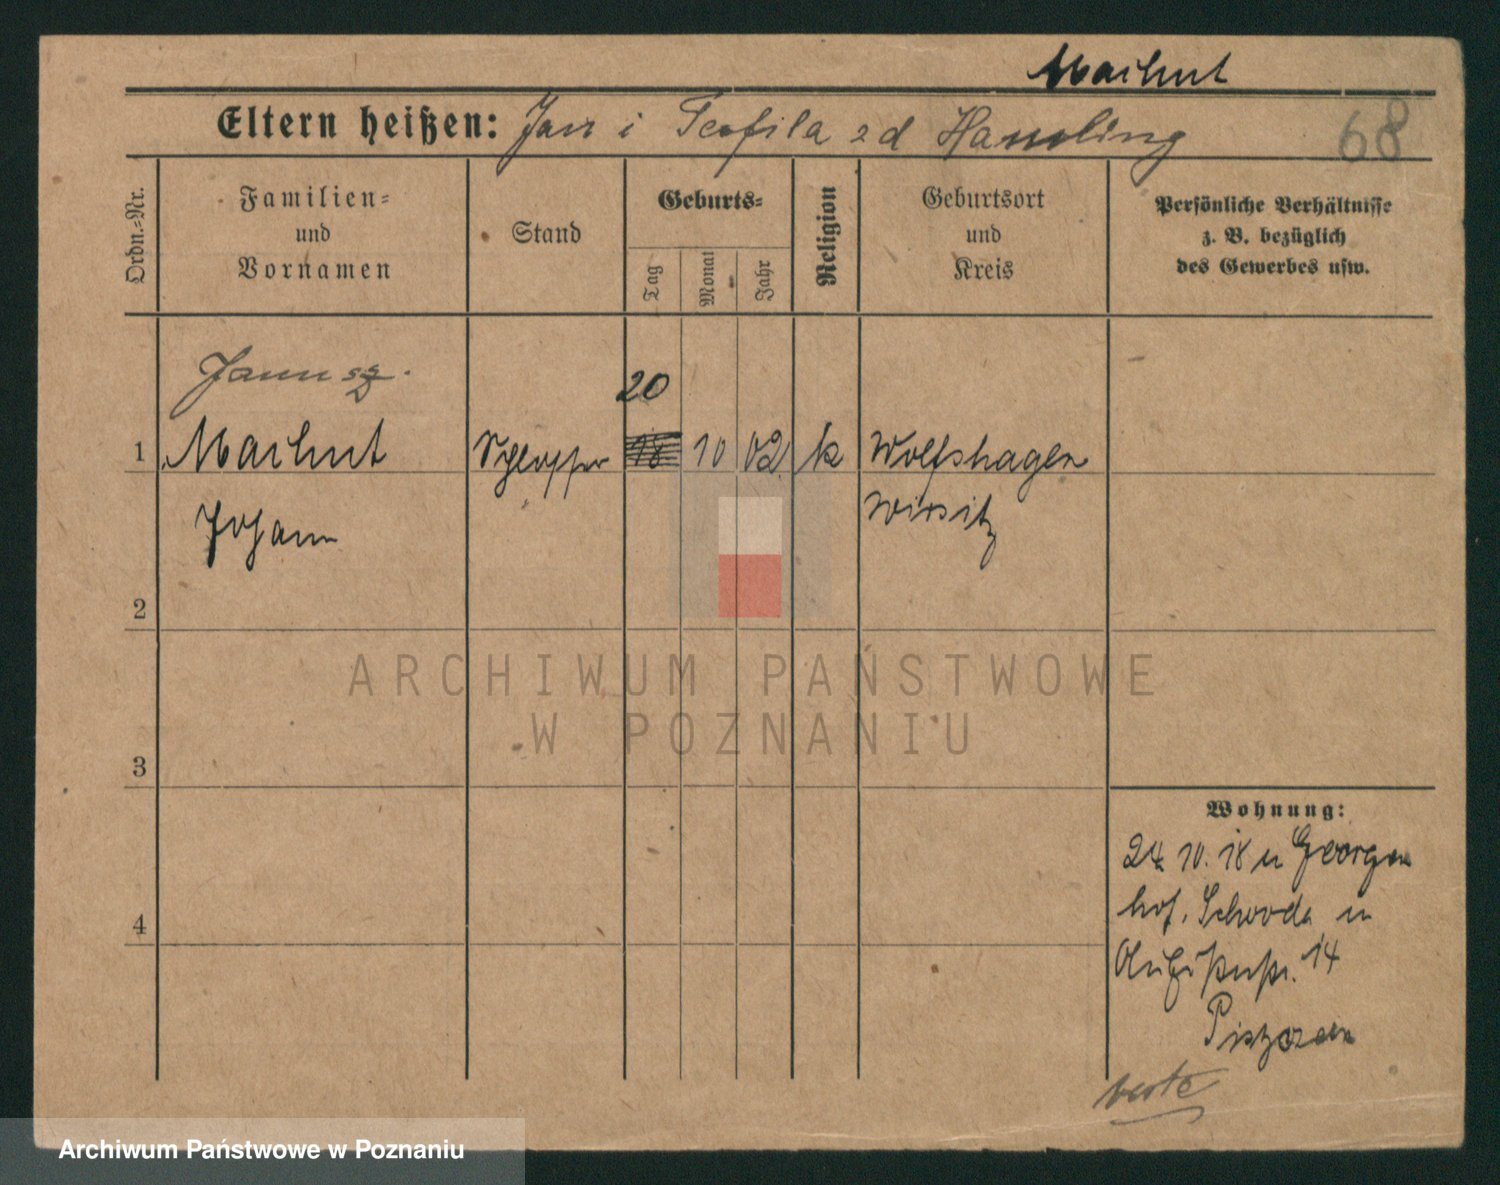 Machut
Eltern heißen: Jan i Teofila zd Hamling
68
Ordn.-Nr.
Familien-
und
Vornamen
Stand
Geburts-
Tag
Monat
Jahr
Religion
Geburtsort
und
Kreis
Persönliche Verhältnisse
z. B. bezüglich
des Gewerbes usw.
Janusz.
20
1 Machut Schlosser 18 10 02 k Wolfshagen
Wirsitz
Johann
2
3
4
Wohnung:
24 10. 18 n Georgen
hof, Schroda n
14
ARCHIWUM PAŃSTWOWE
W POZNANIU
Archiwum Państwowe w Poznaniu